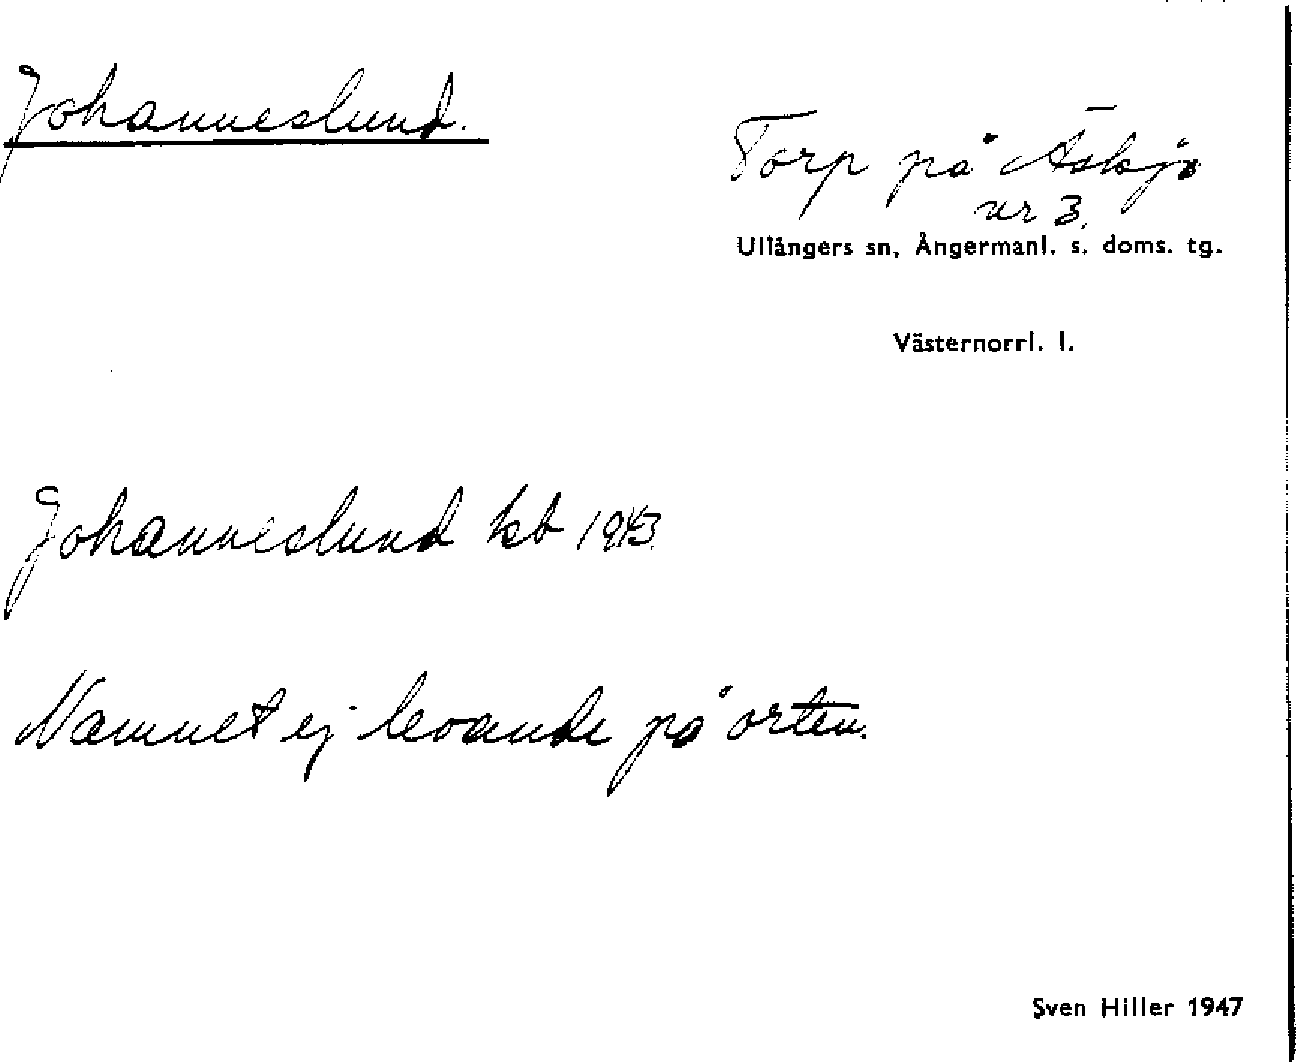 Johanneslund.
Torp på Äskja
nr 3.
Ullångers sn, Ångermanl. s. doms. tg.
Västernorrl. l.
Johanneslund kb 1943.
Namnet ej levande på orten.
Sven Hiller 1947